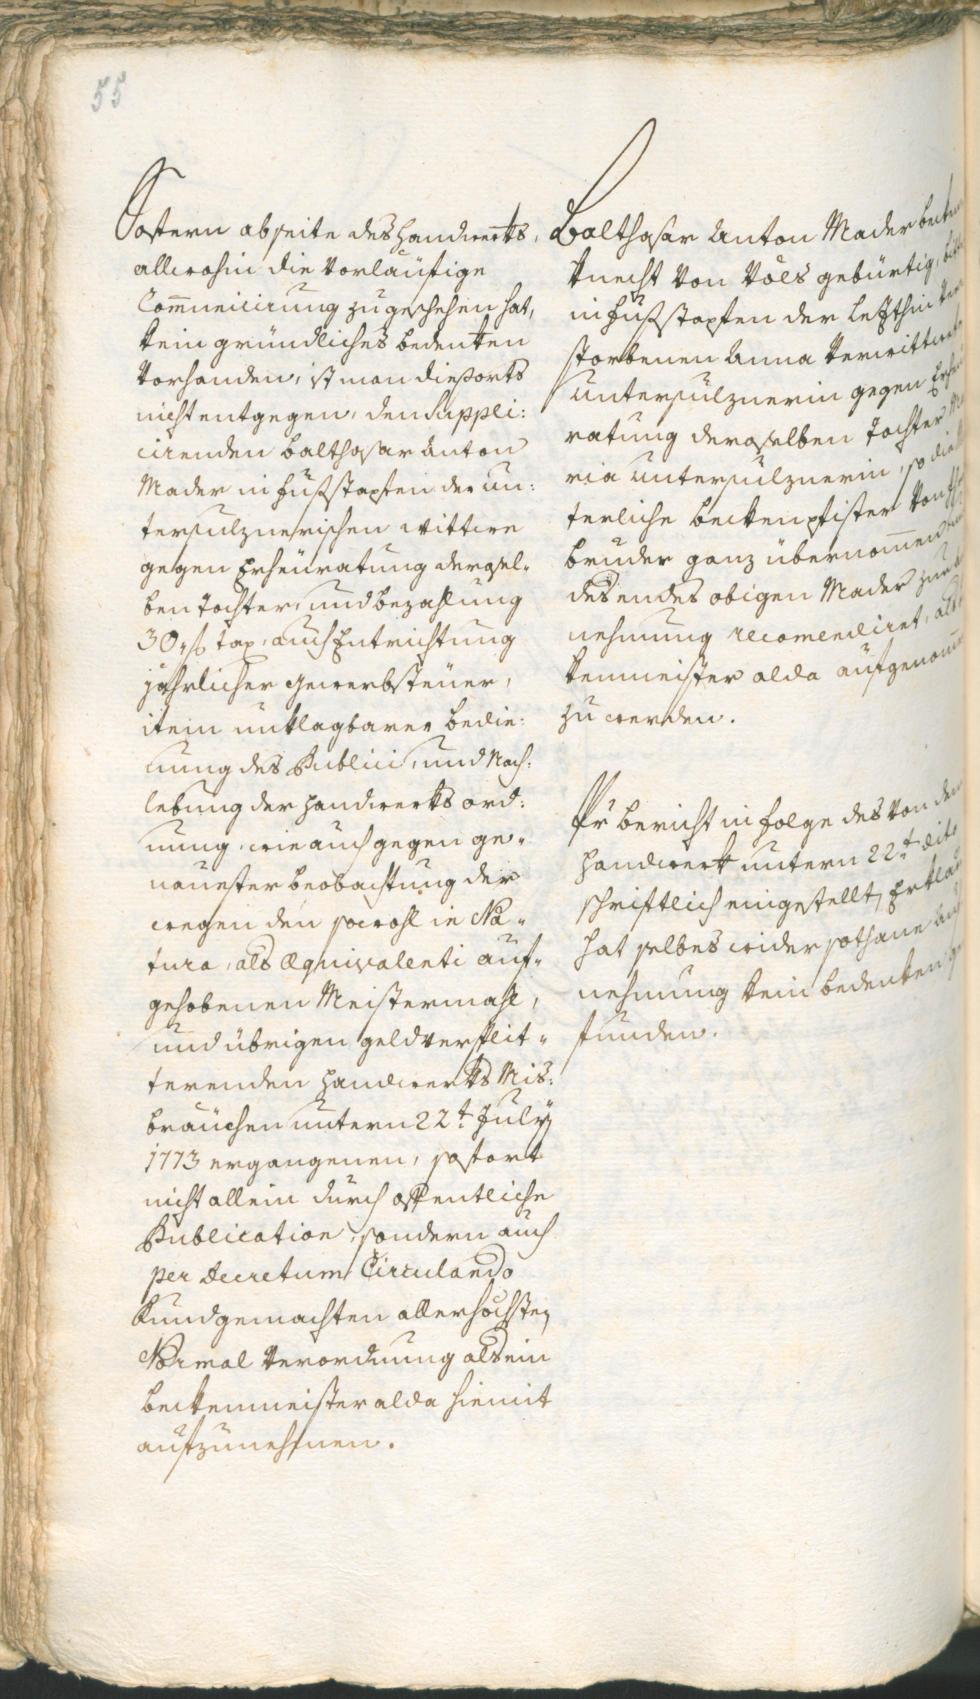 55
Sofern abseite des Handwerks,
allwohin die vorläufige
Communicirung zugeschehen hat,
kein gründliches bedenken
vorhanden, ist man diesorts
nicht entgegen, den Suppli:
cirenden Balthasar Anton
Mader in Fußstapfen der Un:
tersulznerischen Wittwe
gegen Erheuratung dersel-
ben Tochter, und bezahlung
30 f tax, auch Entrichtung
jährlicher Gewerbsteuer,
item unklagbarer bedie:
nung des Publici, und Nach:
lebung der Handwerks ord:
nung, wie auch gegen ge-
nauester beobachtung der
wegen den sowohl in Na-
tura, als Æquivalenti auf-
gehobenen Meistermahl,
und übrigen geldversplit-
terenden Handwerks Mis:
bräuchen untern 22t July
1773 ergangenen, sofort
nicht allein durch offentliche
Publication, sondern auch
per Decretum Circulando
kundgemachten allerhöchsten
Normal Verordnung als ein
beckenmeister alda hiemit
aufzunehmen.
Balthasar Anton Mader becken
knecht von Völs gebürtig,
in Fußstapfen der letzthin ver
storbenen Anna verwittweten
Untersulznerin gegen Erheu
ratung deroselben Tochter Ma
ria Untersulznerin, so die
terliche beckenpfister von
bruder ganz übernommen
des endes obigen Mader zur
nehmung recomendiret, als
kenmeister alda aufgenommen
zu werden.
Pr bericht in folge des von dem
Handwerk untern 22t dito
schriftlich eingestellt, Erklär
hat selbes wider sothane
nehmung kein bedenken ge
funden.